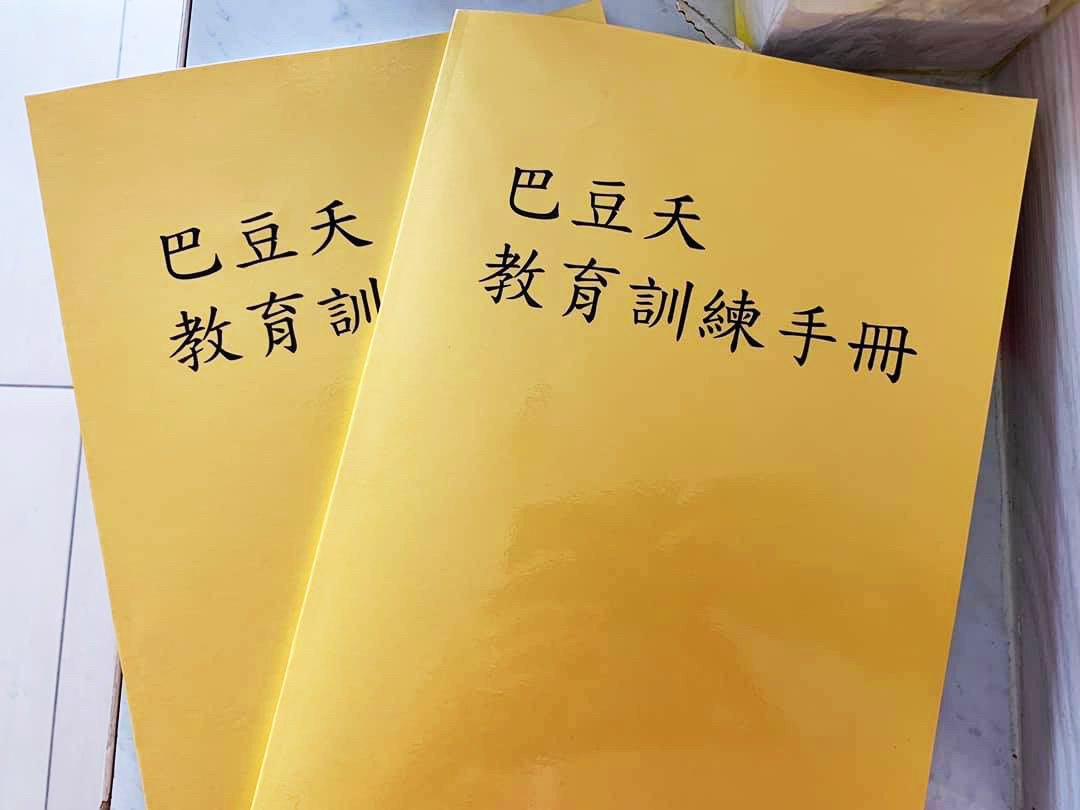 巴豆夭
教育訓
巴豆夭
教育訓練手冊